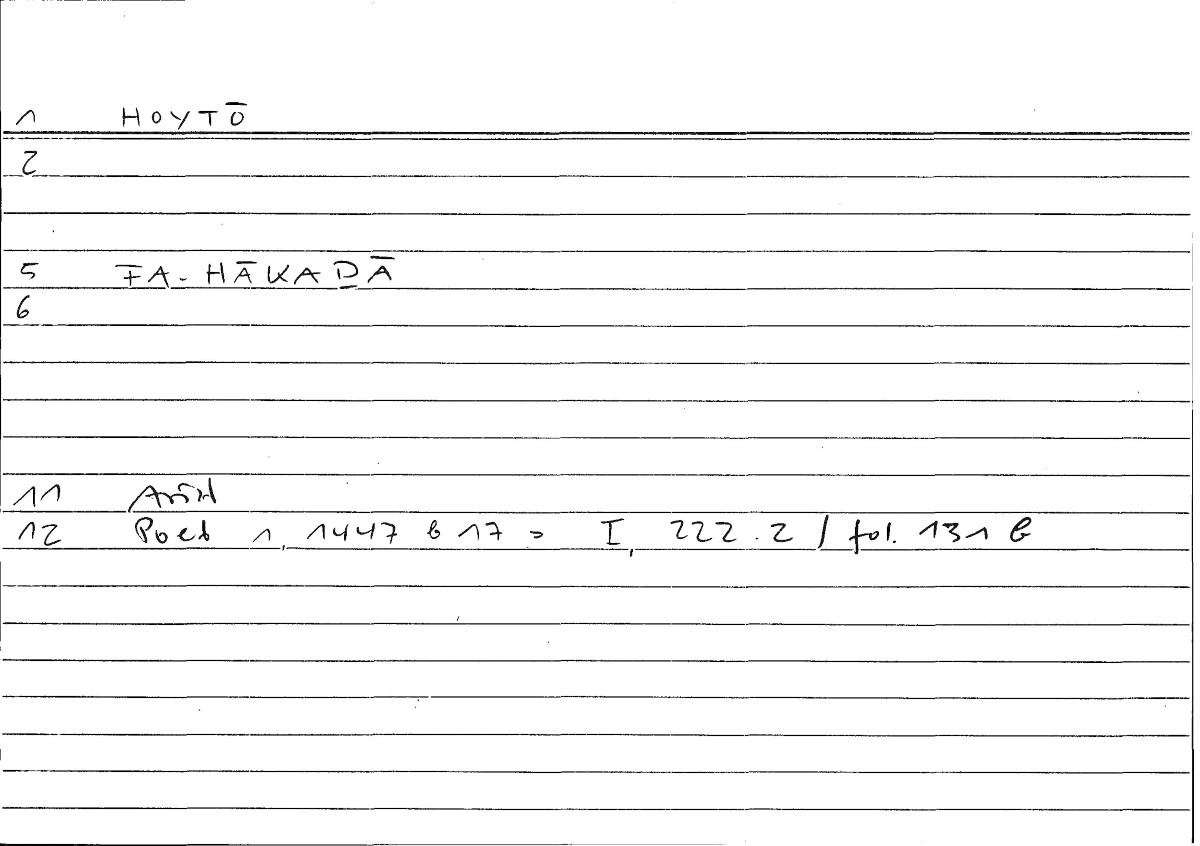 1 HOYTŌ
2
5 FA-HĀKAḎĀ
6
11 Arist
12 Poet 1, 1447 b 17 = I, 222.2 / fol. 131 b